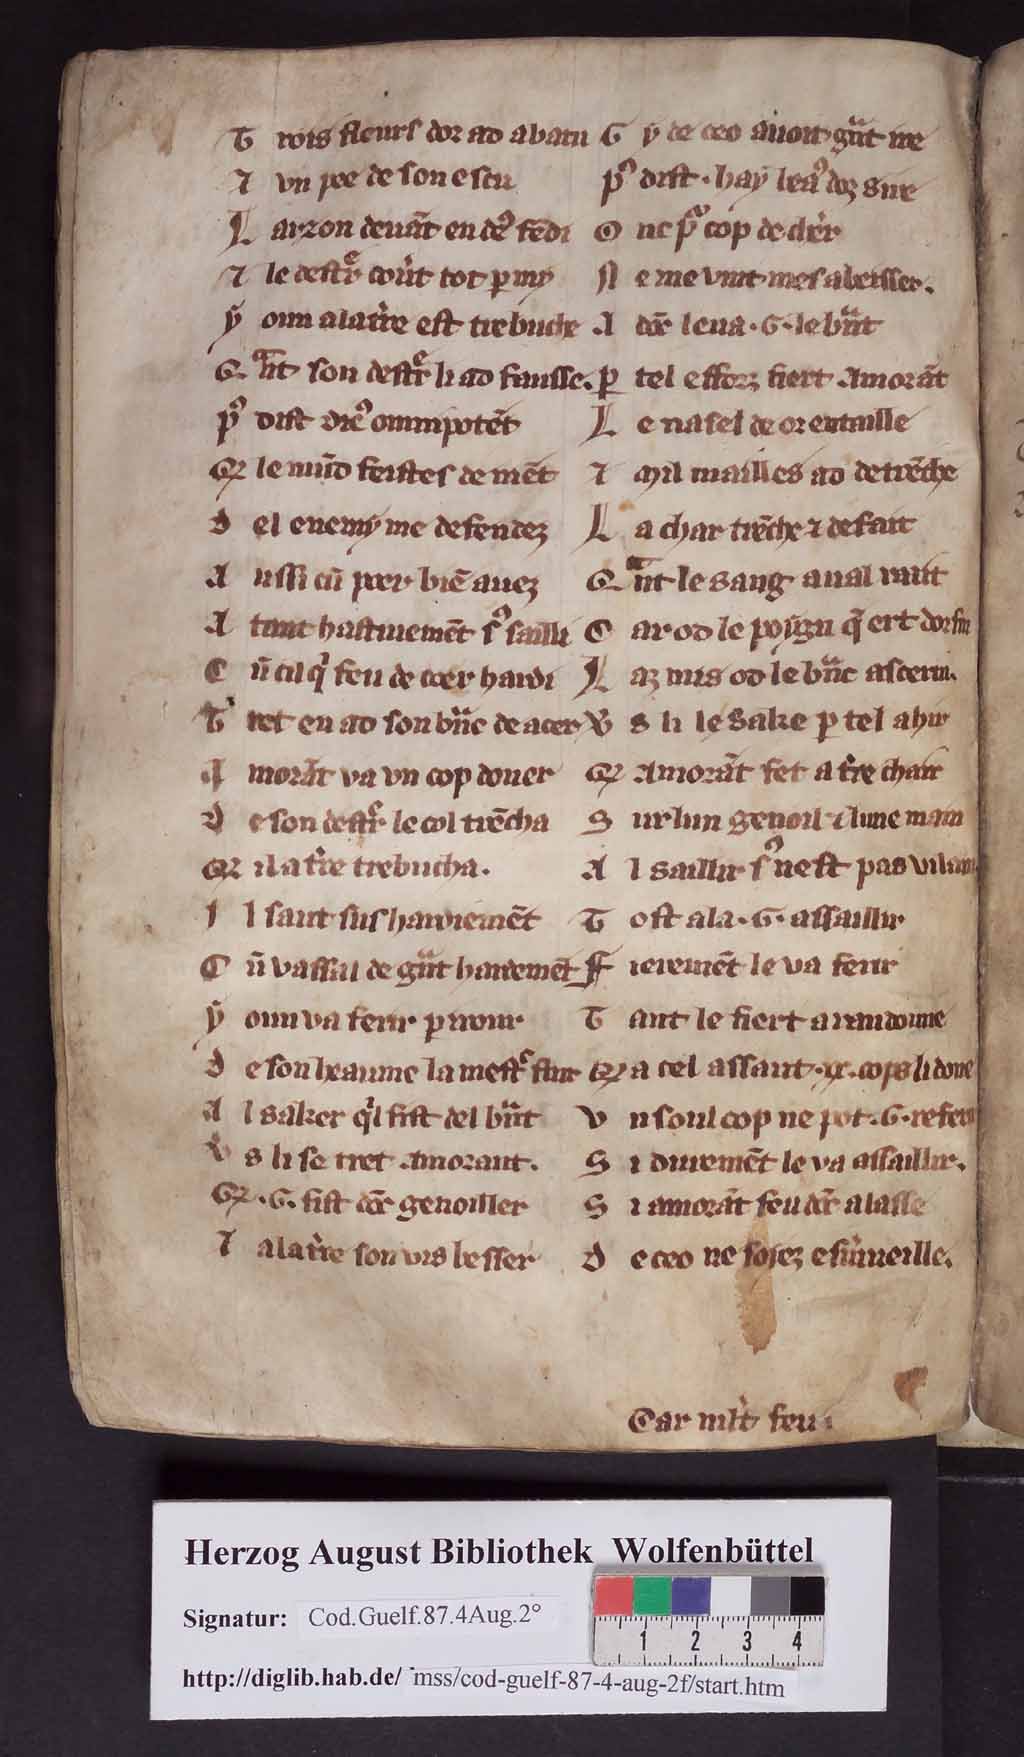 T rois fleurs dor ad abatu
⁊ vn pee de son escu
L arzon deuãt en deˀ fẽdi
⁊ le destrͤ coũt tot ꝑ my
ẏ oun a latr̃e est trebuche
Qͣnt son destrͤ li ad fausse.
pˀ dist dieˀ omnipotẽt
Qe le mũd feistes de niẽt
D el enemẏ me defendez
A ussi cũ poer biẽ auez
A tant hastiuemẽt sˀ sailli
C ũ cil qͥ feu de coer hardi
T ret en ad son bͬnc de acer
A morãt va vn cop doner
D e son destrͤ le col trẽcha
Qe il a tr̃e trebucha.
I l saut sus hardiemẽt
C ũ vassal de gͣnt hardemẽt
ẏ oun va ferir ꝑ irour
D e son heaume la mestͤ flur
A l saker qͥl fist del bͬnt
V s li se tret Amorant.
Qe .G. fist der genoiller
⁊ a la tr̃e son vis besser
G ẏ de ceo auoit gͣnt ire
pˀ dist . haẏ beaˀ doz sire
O nc pͬ cop de cheͬ
N e me vint mes a beisser.
A der̃ leua .G. le bͬnt
ꝑ tel efforz fiert Amorãt
L e nasel de or entaille
⁊ Mil mailles ad detrẽche
L a char trẽche ⁊ defait
Qͣnt le sang aual vait
C ar od le poẏgn q̃ ert dor fin
L az mis od le bͬnc ascerin.
V s li le sake ꝑ tel ahir
Qe Amorãt fet a tr̃e chair
S ur lun genoil ⁊ lune main
A l saillir sˀ nest pas vilain
T ost ala .G. assaillir
F ieremẽt le va ferir
T ant le fiert a randoune
Qe a cel assaut .ix. cops li done
V n soul cop ne pot .G. referir
S i duremẽt le va assaillir.
S i amorãt feu der̃ alasse
D e ceo ne soiez esm̃ueille.
Car mlt̃ feu
Herzog August Bibliothek Wolfenbüttel
Signatur: Cod.Guelf.87.4Aug.2°
1 2 3 4
http://diglib.hab.de/ mss/cod-guelf-87-4-aug-2f/start.htm